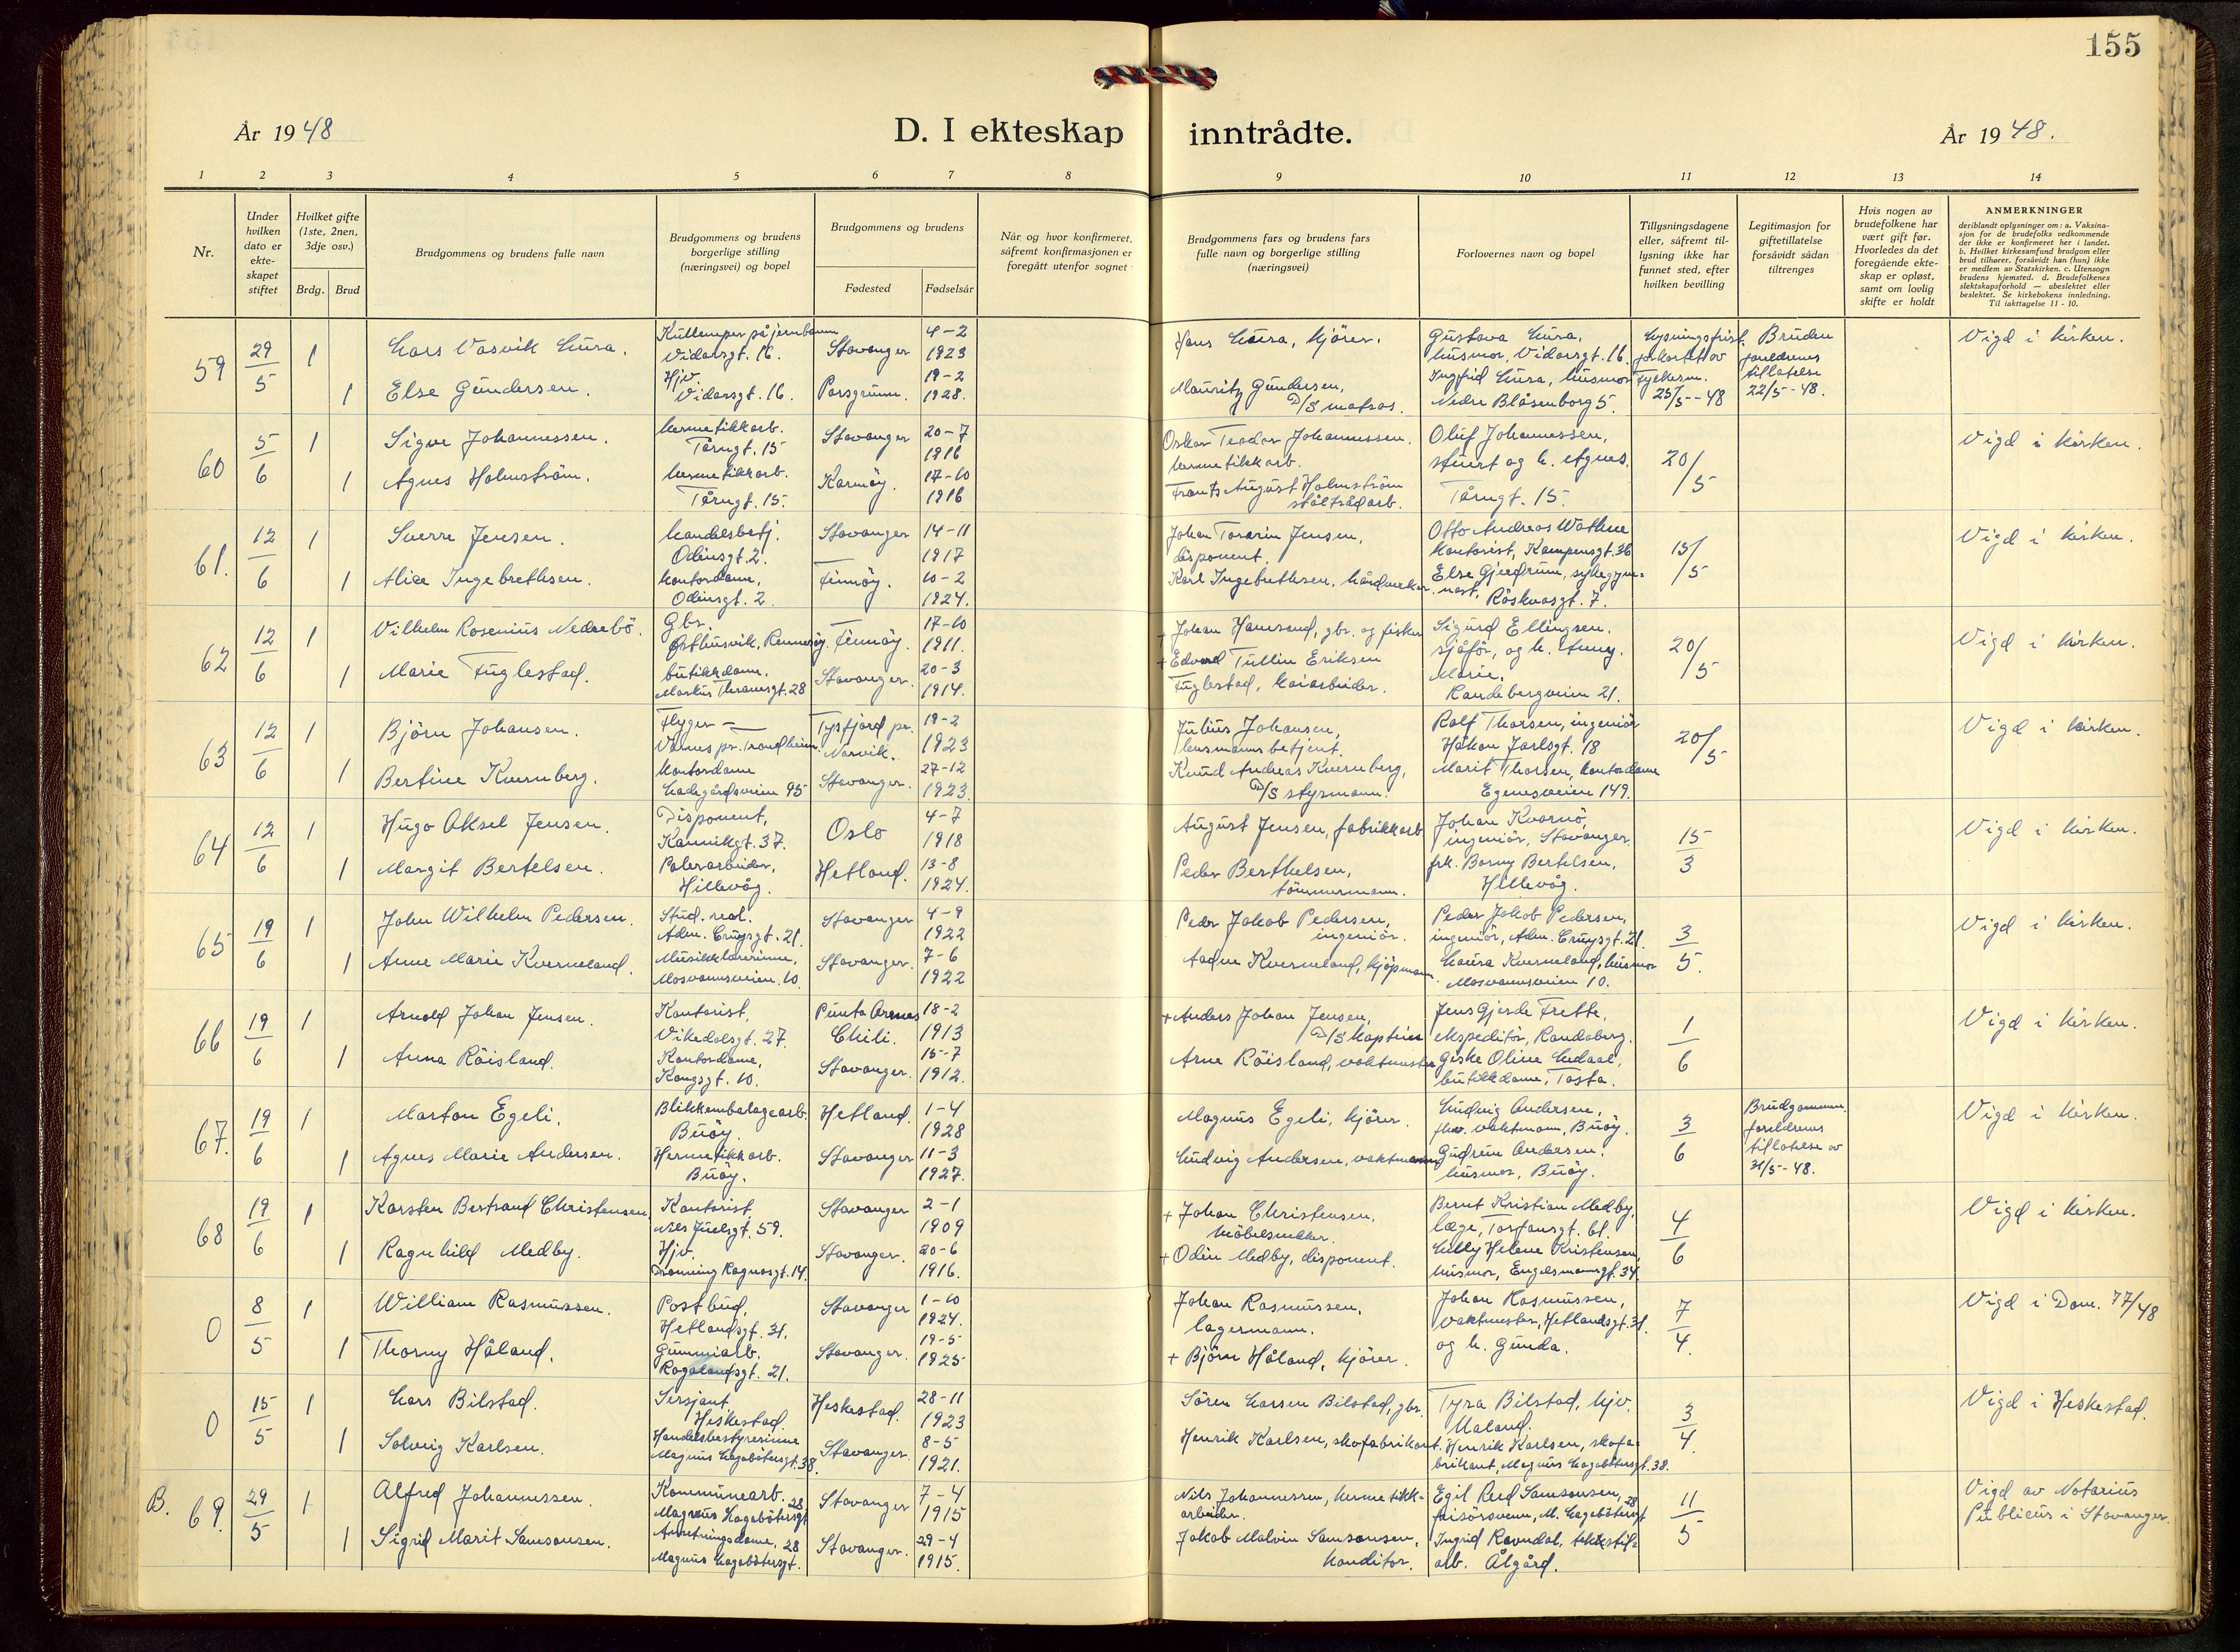 155
År 1948
D. I ekteskap inntrådte.
År 1948.
1 2 3 4 5 6 7 8 9 10 11 12 13 14
Nr.
Under hvilken dato er ekte-skapet stiftet
Hvilket gifte (1ste, 2nen, 3dje osv.)
Brdg. Brud
Brudgommens og brudens fulle navn
Brudgommens og brudens borgerlige stilling (næringsvei) og bopel
Brudgommens og brudens
Fødested Fødselsår
Når og hvor konfirmeret, såfremt konfirmasjonen er foregått utenfor sognet
Brudgommens fars og brudens fars fulle navn og borgerlige stilling (næringsvei)
Forlovernes navn og bopel
Tillysningsdagene eller, såfremt til-lysning ikke har funnet sted, efter hvilken bevilling
Legitimasjon for giftetillatelse forsåvidt sådan tiltrenges
Hvis nogen av brudefolkene har vært gift før. Hvorledes da det foregående ekte-skap er opløst, samt om lovlig skifte er holdt
ANMERKNINGER
deriblandt oplysninger om: a. Vaksina-sjon for de brudefolks vedkommende der ikke er konfirmeret her i landet. b. Hvilket kirkesamfund brudgom eller brud tilhører, forsåvidt han (hun) ikke er medlem av Statskirken. c. Utensogn brudens hjemsted. d. Brudefolkenes slektskapsforhold — ubeslektet eller beslektet. Se kirkebokens innledning. Til iakttagelse 11 - 10.
59 29/5 1 Lars Vasvik Lura. Vidarsgt. 16. Stavanger 4-2 1923 Hans Laura, kjører. Gustava Lura, husmor, Vidarsgt. 16. Vigd i kirken.
1 Else Gundersen. Hjv. Vidarsgt. 16. Porsgrunn. 19-2 1928. Mauritz Gundersen, D/S matros. Ingfrid Lura, husmor Nedre Blåsenborg 5. 25/5-48 Bruden foreldrenes tillatelse 22/5-48.
60 5/6 1 Sigve Johannessen. hermetikkarb. Tårngt. 15 Stavanger 20-7 1916 Oskar Teodor Johannessen. hermetikkarb. Oluf Johannessen, stuert og h. Agnes, Tårngt. 15. 20/5 Vigd i kirken.
1 Agnes Holmström. hermetikkarb. Tårngt. 15. Karmøy. 17-10 1916 Frantz August Holmström ståltrådarb.
61. 12/6 1 Sverre Jensen. handelsbetj. Odinsgt. 2. Stavanger 14-11 1917 Johan Tararin Jensen, disponent. Otto Andreas Wathne kontorist, Kampensgt. 36 15/5 Vigd i kirken.
1 Alice Ingebrethsen. kontordame, Odinsgt. 2. Finnøy. 10-2 1924. Karl Ingebrethsen, håndverker. Else Gjerdrum, sykegym=nast, Röskvasgt. 7.
62 12/6 1 Vilhelm Rosenius Nedrebø. Gbr. Østhusvik, Rennesøy. Finnøy. 17-10 1911. + Johan Hanasand, gbr. og fisker Sigurd Ellingsen. sjåfør, og h. Anny. Marie, Randabergveien 21. 20/5 Vigd i kirken.
1 Marie Fuglestad. butikkdame, Markus Thranesgt. 28 Stavanger. 20-3 1914. + Edvard Tullin Eriksen Fuglestad, kaiarbeider.
63 12/6 1 Bjørn Johansen. Flyger — Værnes pr. Trondheim. Tysfjord pr. Narvik. 19-2 1923 Julius Johansen, lensmannsbetjent. Rolf Thorsen, ingeniør Håkon Jarlsgt. 18 20/5 Vigd i kirken.
1 Bertine Kvernberg. kontordame Ladegårdsveien 95 Stavanger. 27-12 1923. Knud Andreas Kvernberg, D/S styrmann. Marit Thorsen, kontordame Egenesveien 149.
64 12/6 1 Hugo Aksel Jensen. Disponent, Kannikgt. 37. Oslo 4-7 1918 August Jensen, fabrikkarb Johan Kvarnø, ingeniør, Stavanger. 15/3 Vigd i kirken.
1 Margit Bertelsen. Hillevåg. Hetland. 13-8 1924. Peder Berthelsen, tömmermann. frk. Borny Bertelsen, Hillevåg.
65 19/6 1 John Wilhelm Pedersen. Stud. real. Adm. Cruysgt. 21. Stavanger 4-9 1922 Peder Jakob Pedersen, ingeniør. Peder Jakob Pedersen, ingeniør, Adm. Cruysgt. 21. 3/5. Vigd i kirken.
1 Anne Marie Kverneland. Musikklærerinne, Mosvannsveien 10. Stavanger. 7-6 1922 Aadne Kverneland, kjøpmann. Laura Kverneland, husmor Mosvannsveien 10.
66 19/6 1 Arnold Johan Jensen. Kontorist, Vikedalsgt. 27. Punta Arenas Chili. 18-2 1913 + Anders Johan Jensen, D/S kaptein Jens Gjerde Frette, ekspeditør, Randaberg. 1/6 Vigd i kirken.
1 Anna Röisland. Kontordame, Kongsgt. 10. Stavanger. 15-7 1912. Arne Röisland, vaktmester Giske Oline Ledaal, butikkdame, Tasta.
67. 19/6 1 Marton Egeli. Blikkemballagearb. Buøy. Hetland. 1-4 1928 Magnus Egeli, kjører. Ludvig Andersen, vaktmann, Buøy. 3/6 Brudgommens foreldrenes tillatelse av 31/5-48. Vigd i kirken.
1 Agnes Marie Andersen. Hermetikkarb. Buøy. Stavanger 11-3 1927. Ludvig Andersen, vaktmann Gudrun Andersen. husmor, Buøy.
68 19/6 1 Karsten Bertrand Christensen. Kontorist, Nils Juelsgt. 59. Stavanger 2-1 1909 + Johan Christensen, møbelsnekker. Bernt Kristian Medby, læge, Torfæusgt. 61. 4/6 Vigd i kirken.
1 Ragnhild Medby. Hjv. Dronning Ragnasgt. 14. Stavanger. 20-6 1916. + Odin Medby, disponent. Lilly Helene Kristensen, husmor, Engelsmannsgt. 34.
0 8/5 1 William Rasmussen. Postbud, Hetlandsgt. 31. Stavanger 1-10 1924. Johan Rasmussen, lagermann. Johan Rasmussen, vaktmester, Hetlandsgt. 31. og h. Gunda. 7/4. Vigd i Dom. 77/48
1 Thorny Håland. Gummiarb. Rogalandsgt. 21. Stavanger. 19-5 1925 + Bjørn Håland, kjører.
0 15/5 1 Lars Bilstad. Sersjant Heskestad. Heskestad. 28-11 1923 Sören Larsen Bilstad, gbr. Tyra Bilstad, hjv. Ualand. 3/4. Vigd i Heskestad.
1 Solveig Karlsen. Handelsbestyrerinne Magnus Lagabøtersgt. 38. Stavanger. 8-5 1921. Henrik Karlsen, skofabrikant. Henrik Karlsen, skofa=brikant, Magnus Lagabøtersgt. 38.
B. 69. 29/5 1 Alfred Johannessen. Kommunearb. Magnus Lagabøtersgt 28 Stavanger 7-4 1915 Nils Johannessen, hermetikk=arbeider. Egil Reed Samsonsen, frisørsvenn, M. Lagabøtersgt 28 11/5 Vigd av Notarius Publicus i Stavanger.
1 Sigrid Marit Samsonsen. Anretningsdame, Magnus Lagabøtersgt. 28 Stavanger. 29-4 1915. Jakob Malvin Samsonsen, konditor. Ingrid Ravndal, tekstil=arb. Ålgård.